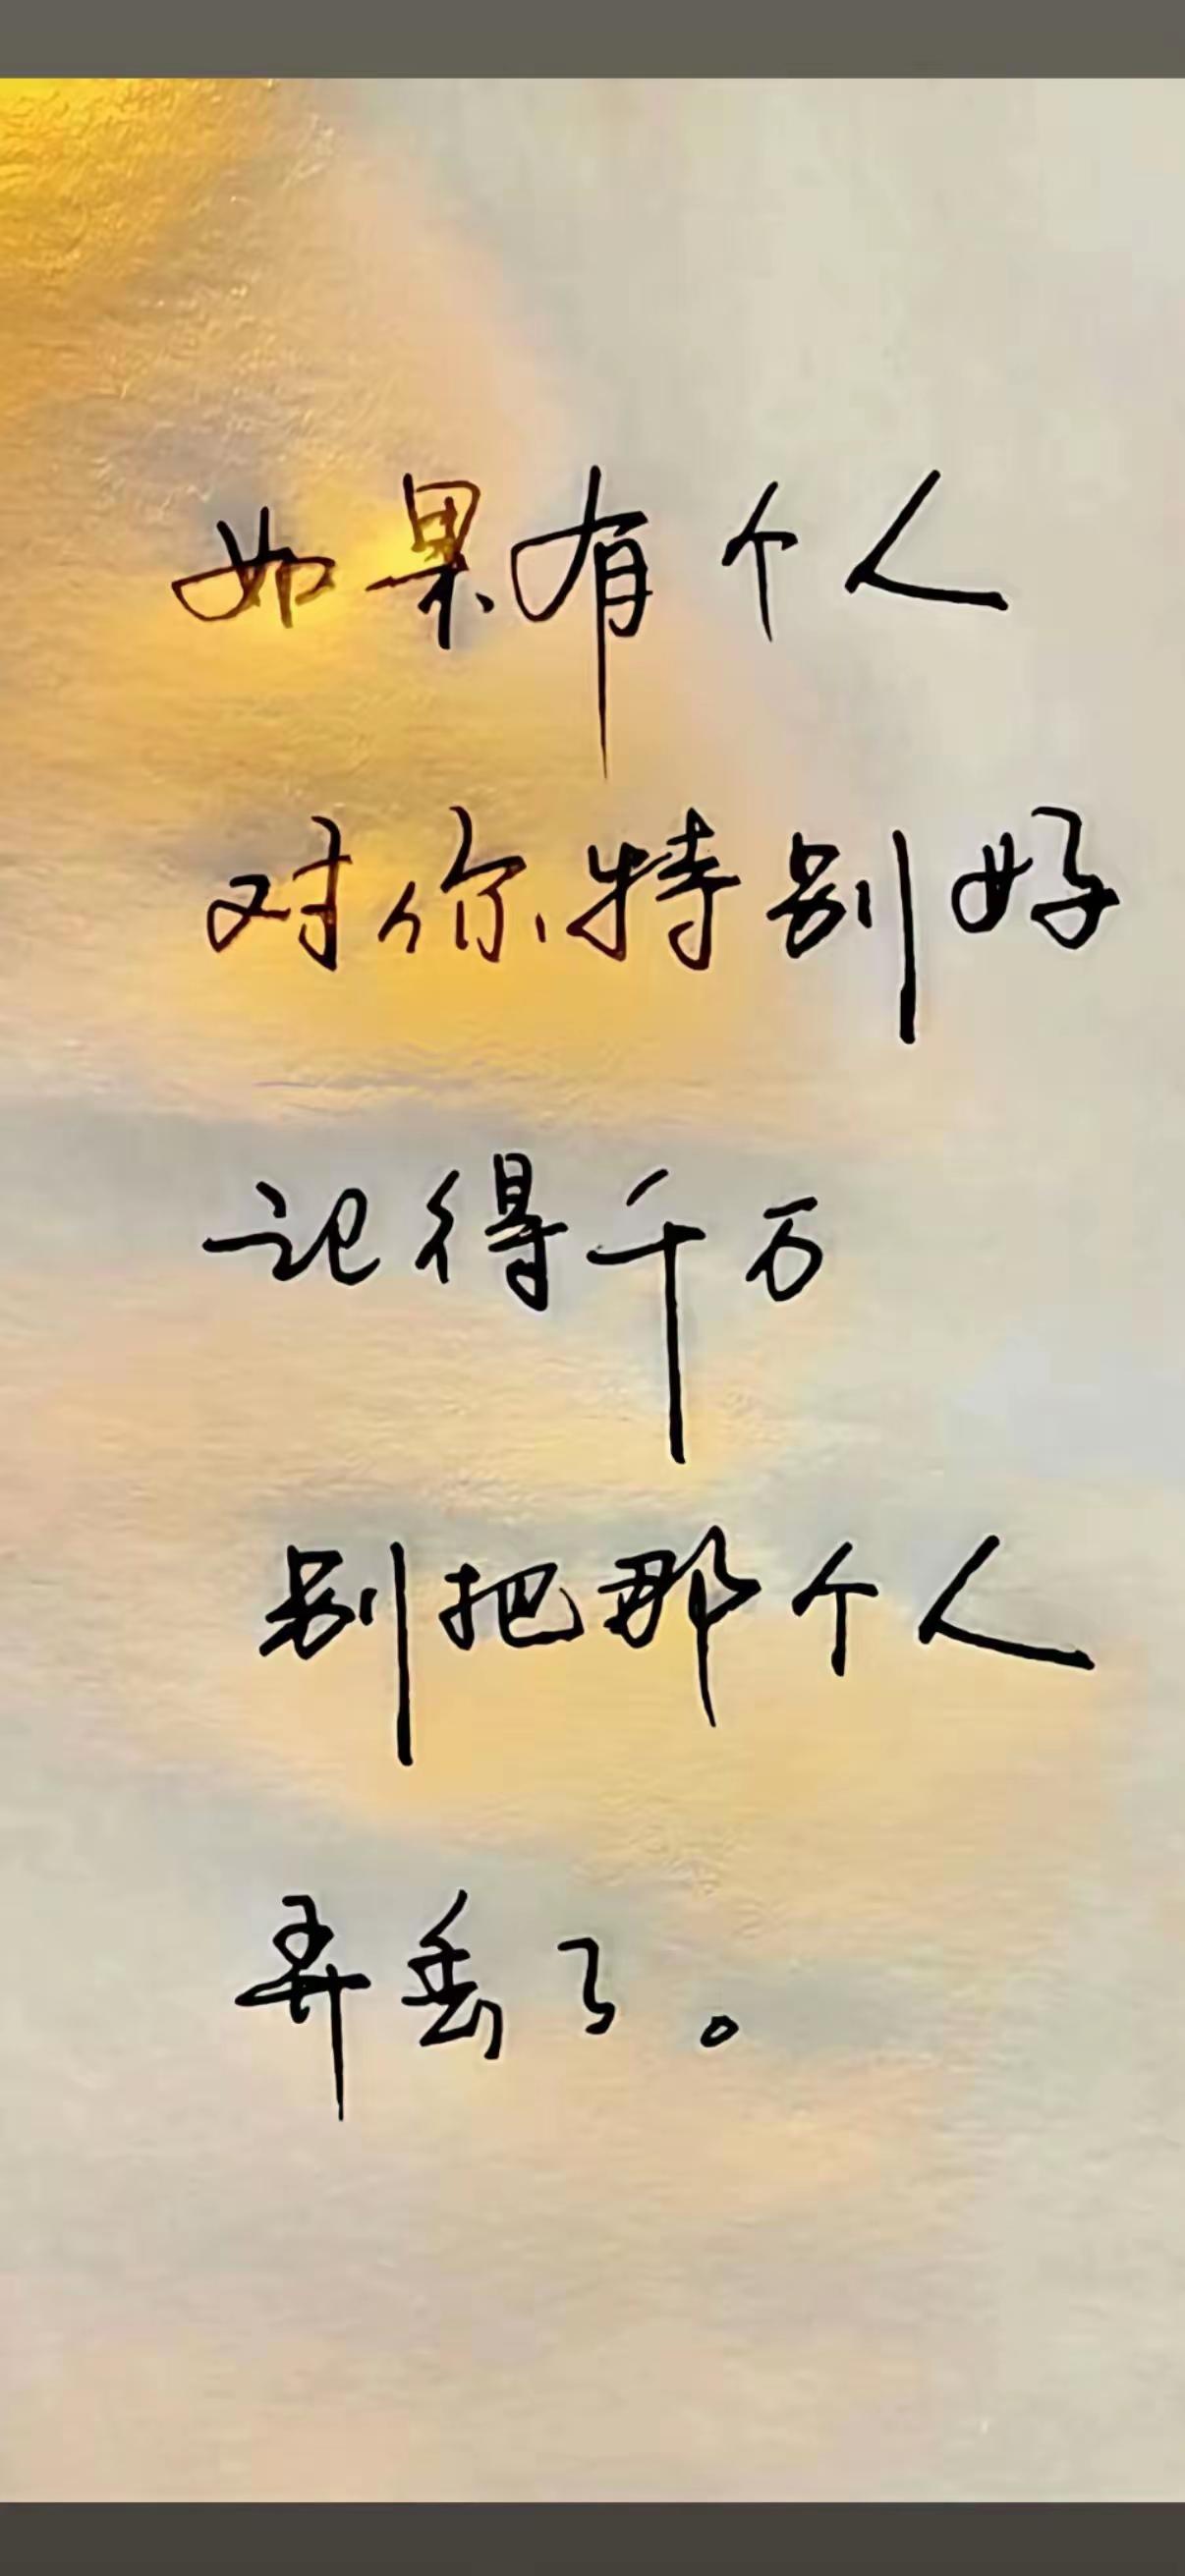 如果有个人
对你特别好
记得千万
别把那个人
弄丢了。